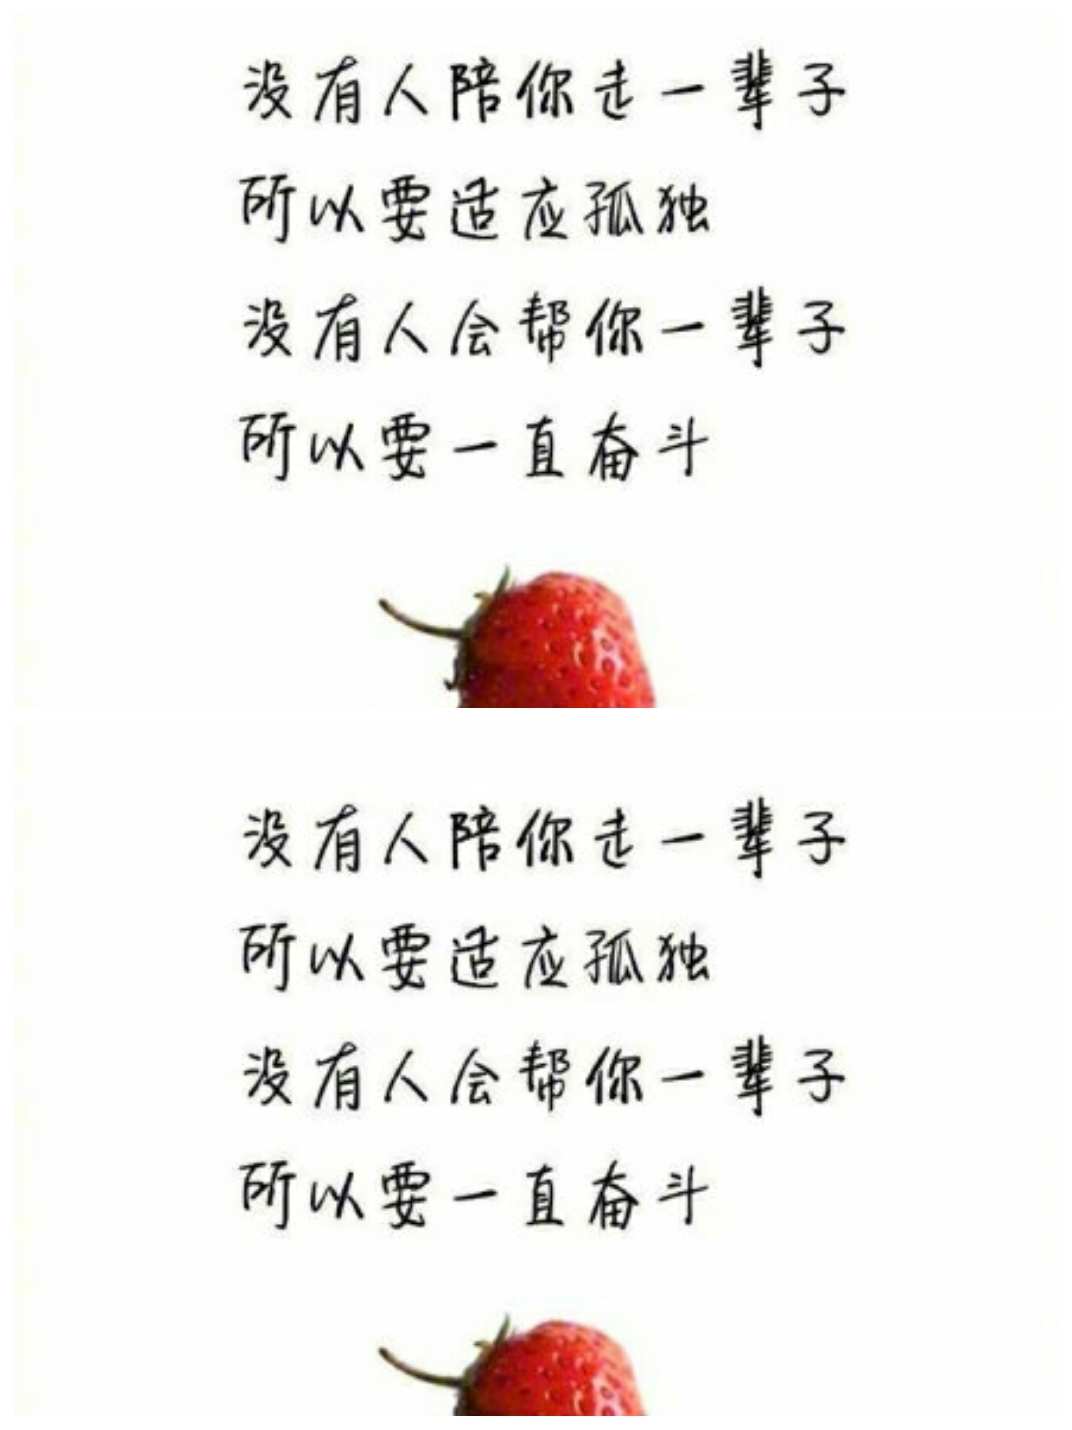 没有人陪你走一辈子
所以要适应孤独
没有人会帮你一辈子
所以要一直奋斗
没有人陪你走一辈子
所以要适应孤独
没有人会帮你一辈子
所以要一直奋斗